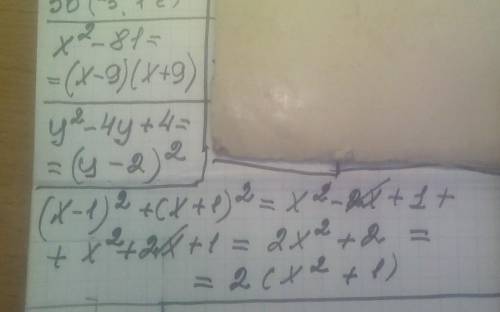 x² - 81 =
= (x-9)(x+9)
y² - 4y + 4 =
= (y - 2)²
(x-1)² + (x+1)² = x² - 2x + 1 +
+ x² + 2x + 1 = 2x² + 2 =
= 2(x² + 1)